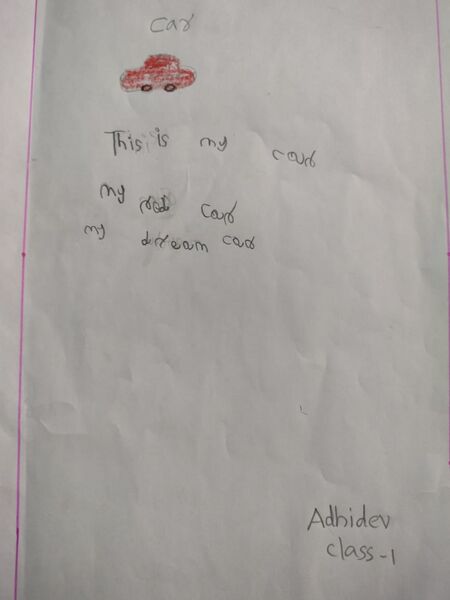 car
This is my car
my red car
my dream car
Adhidev
class-1